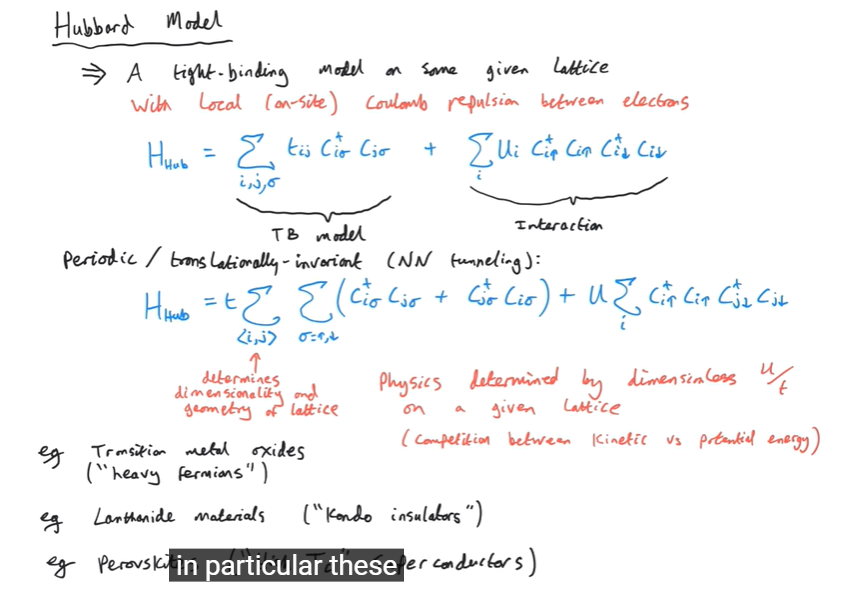 Hubbard Model
⇒ A tight-binding model on some given lattice
with local (on-site) Coulomb repulsion between electrons
H_Hub = Σ_{i,j,σ} t_ij C†_iσ C_jσ + Σ_i U_i C†_i↑ C_i↑ C†_i↓ C_i↓
TB model
Interaction
Periodic / translationally-invariant (NN tunneling):
H_Hub = t Σ_{<i,j>} Σ_{σ=↑,↓} (C†_iσ C_jσ + C†_jσ C_iσ) + U Σ_i C†_i↑ C_i↑ C†_j↓ C_j↓
↑
determines
dimensionality and
geometry of lattice
Physics determined by dimensionless U/t
on a given lattice
(competition between kinetic vs potential energy)
eg Trmsition metal oxides
("heavy fermions")
eg Lanthanide materials ("Kondo insulators")
eg Perovskit
In particular these
perconductors)